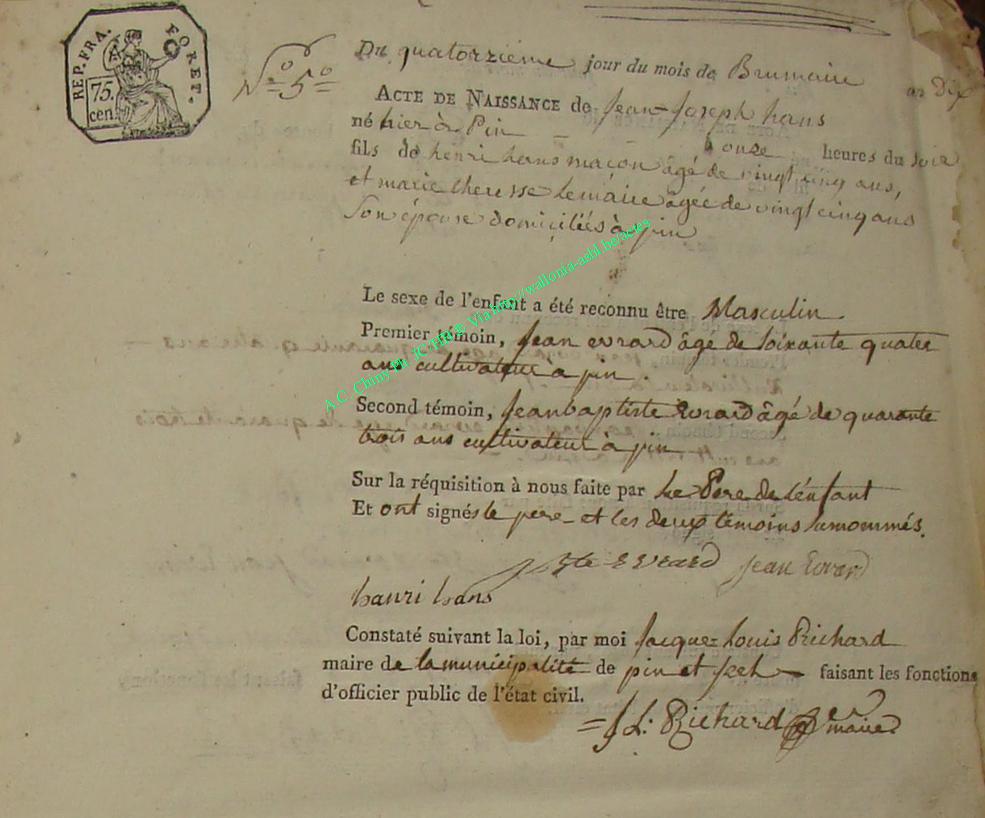 REP. FRA. FORET.
75. cen.
N° 5°
Du quatorzieme jour du mois de Brumaire an Dix
ACTE DE NAISSANCE de Jean-Joseph hans
né hier à Pin à onze heures du soir
fils de henri hans maçon âgé de vingt cinq ans,
et marie theresse Lemaire âgée de vingt cinq ans
son épouse domiciliés à pin
Le sexe de l'enfant a été reconnu être Masculin.
Premier témoin, jean evrard âge de soixante quater
ans cultivateur à pin
Second témoin, jeanbaptiste Evrard âgé de quarante
trois ans cultivateur à pin
Sur la réquisition à nous faite par Le Pere de L'enfant
Et ont signés le pere et les deux témoins surnommés.
Bte Evrard jean Evrard
hanri hans
Constaté suivant la loi, par moi Jacque-Louis Richard
maire de la municipalité de pin et faisant les fonctions
d'officier public de l'état civil.
J L: Richard maire
A.C. Chiny Via http://wallonia-asbl.be/actes